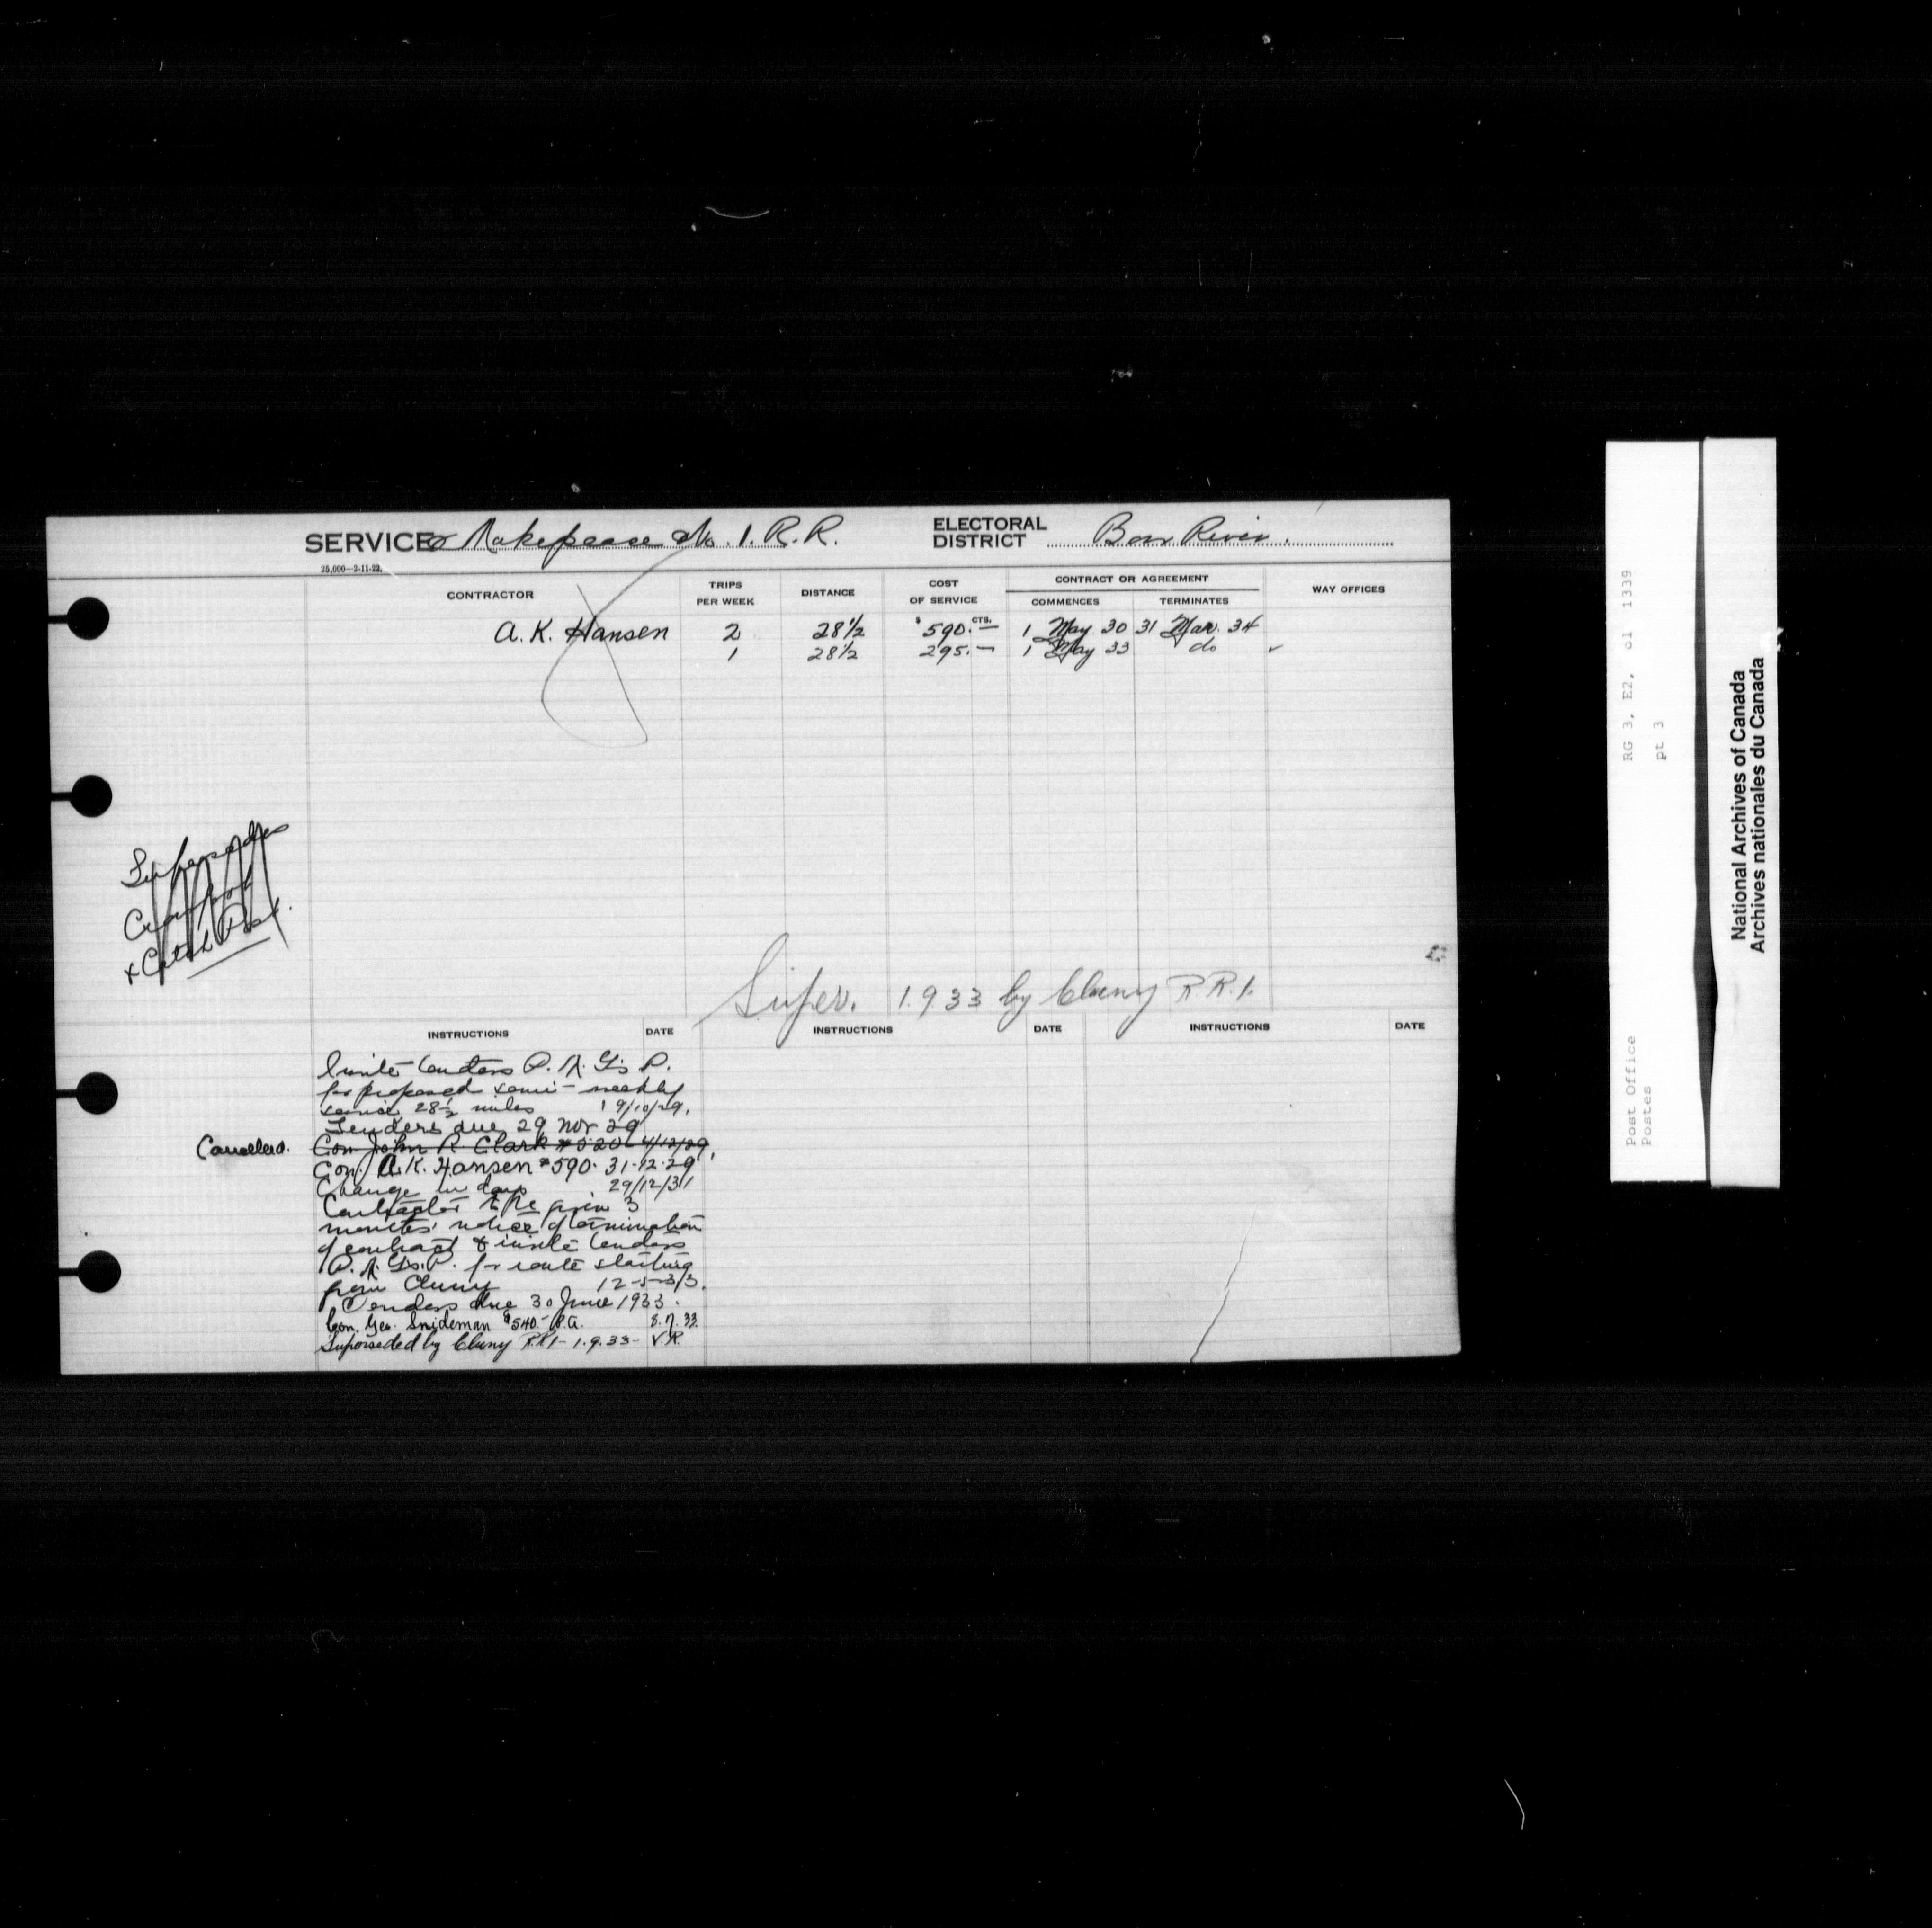 SERVICE Makepeace No. 1. R.R. ELECTORAL DISTRICT Bow River.
25,000—2-11-22.
CONTRACTOR TRIPS PER WEEK DISTANCE COST OF SERVICE CONTRACT OR AGREEMENT COMMENCES TERMINATES WAY OFFICES
$ CTS.
A. K. Hansen 2 28½ 590.— 1 May 30 31 Mar. 34
1 28½ 295.— 1 May 33 do ✓
Supersedes
Crowfoot
&
Super. 1.9.33 by Cluny R.R.1.
INSTRUCTIONS DATE INSTRUCTIONS DATE INSTRUCTIONS DATE
Invite tenders P.N.Gs P.
for proposed semi-weekly
service 28½ miles 19/10/29.
Tenders due 29 Nov 29
Cancelled. Con John R. Clark $520 4/12/29.
Con. A.K. Hansen $590. 31-12-29
Change in days 29/12/31
Contractor to be given 3
months' notice of termination
of contract & invite tenders
P.N.Gs.P. for route starting
from Cluny 12-5-33.
Tenders due 30 June 1933.
Con. Geo. Snideman $540.- P.A. 8.7.33
Superseded by Cluny R.R1- 1.9.33- V.R.
RG 3, E2, cl 1339
pt 3
Post Office
Postes
National Archives of Canada
Archives nationales du Canada